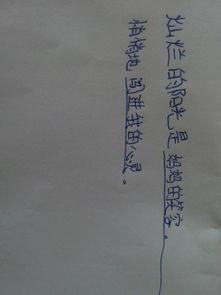 灿烂的阳光是妈妈的笑容，
悄悄地闯进我的心灵。